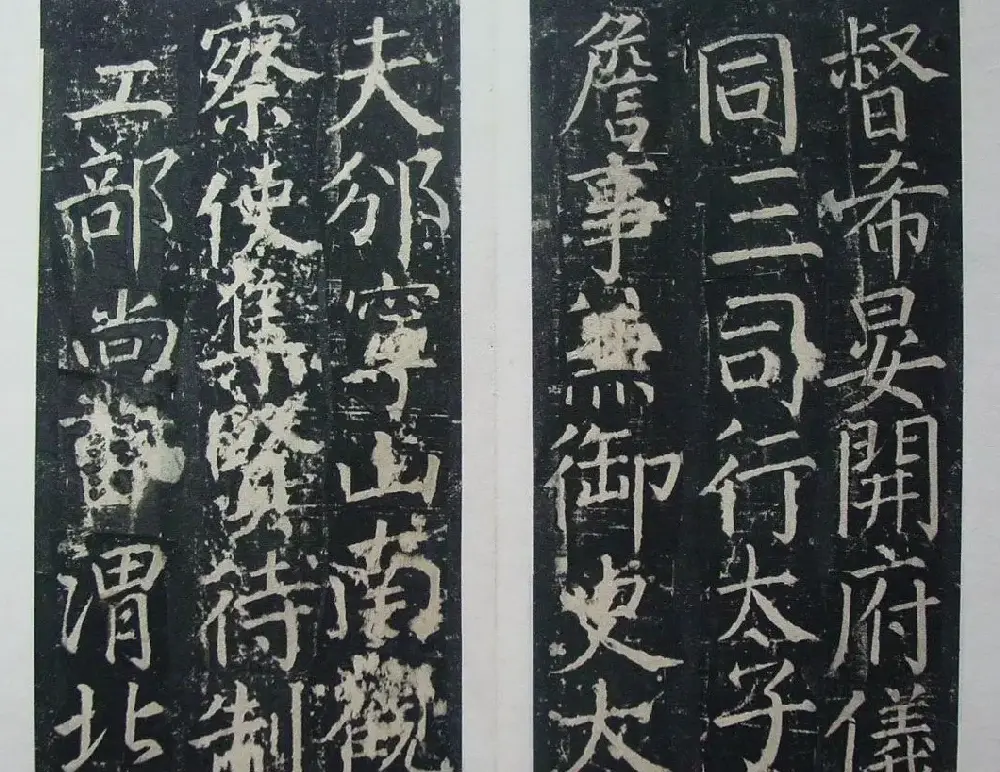 督希晏開府儀
同三司行太子
詹事兼御史大
夫邠寧山南觀
察使集賢待制
工部尚書渭北